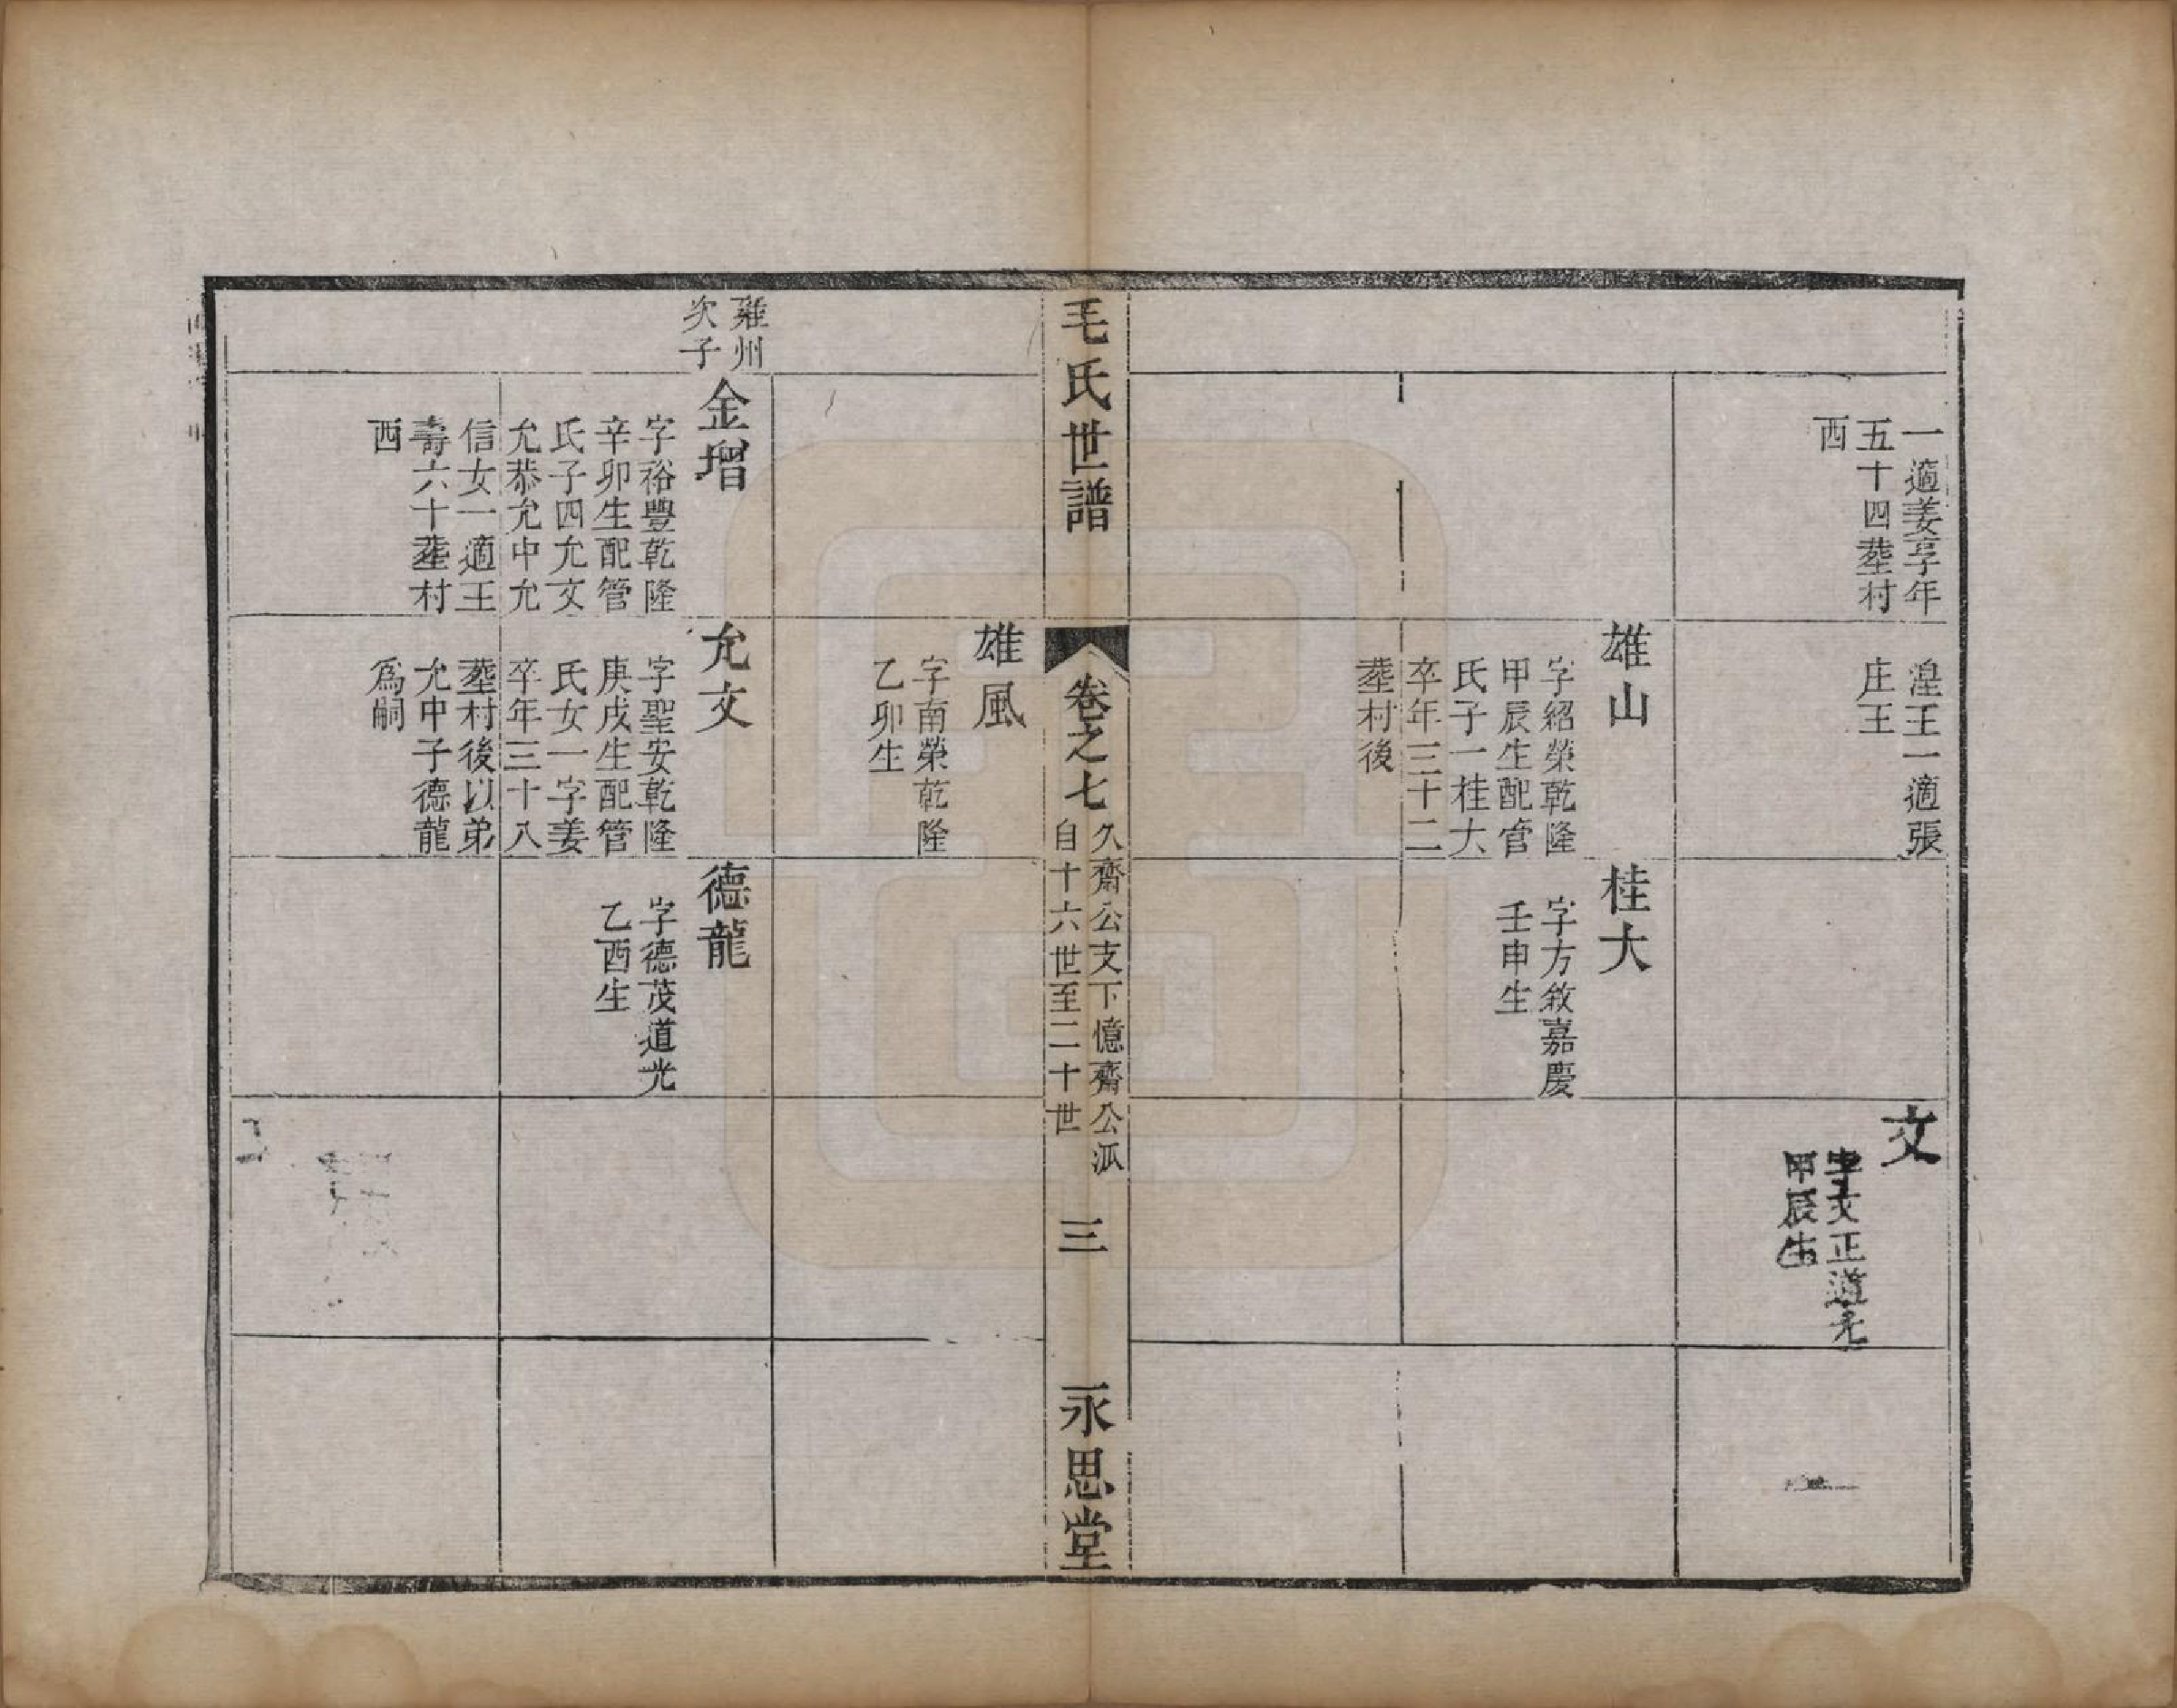 一適姜享年
五十四塟村
西
湟王一適張
庄王
文
字文正道光
甲辰生
雄山
字紹榮乾隆
甲辰生配管
氏子一桂大
卒年三十二
塟村後
桂大
字方敘嘉慶
壬申生
毛氏世譜
卷之七
久齋公支下憶齋公派
自十六世至二十世
三
永思堂
雄風
字南榮乾隆
乙卯生
雍州
次子
金增
字裕豐乾隆
辛卯生配管
氏子四允文
允恭允中允
信女一適王
壽六十塟村
西
允文
字聖安乾隆
庚戌生配管
氏女一字姜
卒年三十八
塟村後以弟
允中子德龍
爲嗣
德龍
字德茂道光
乙酉生